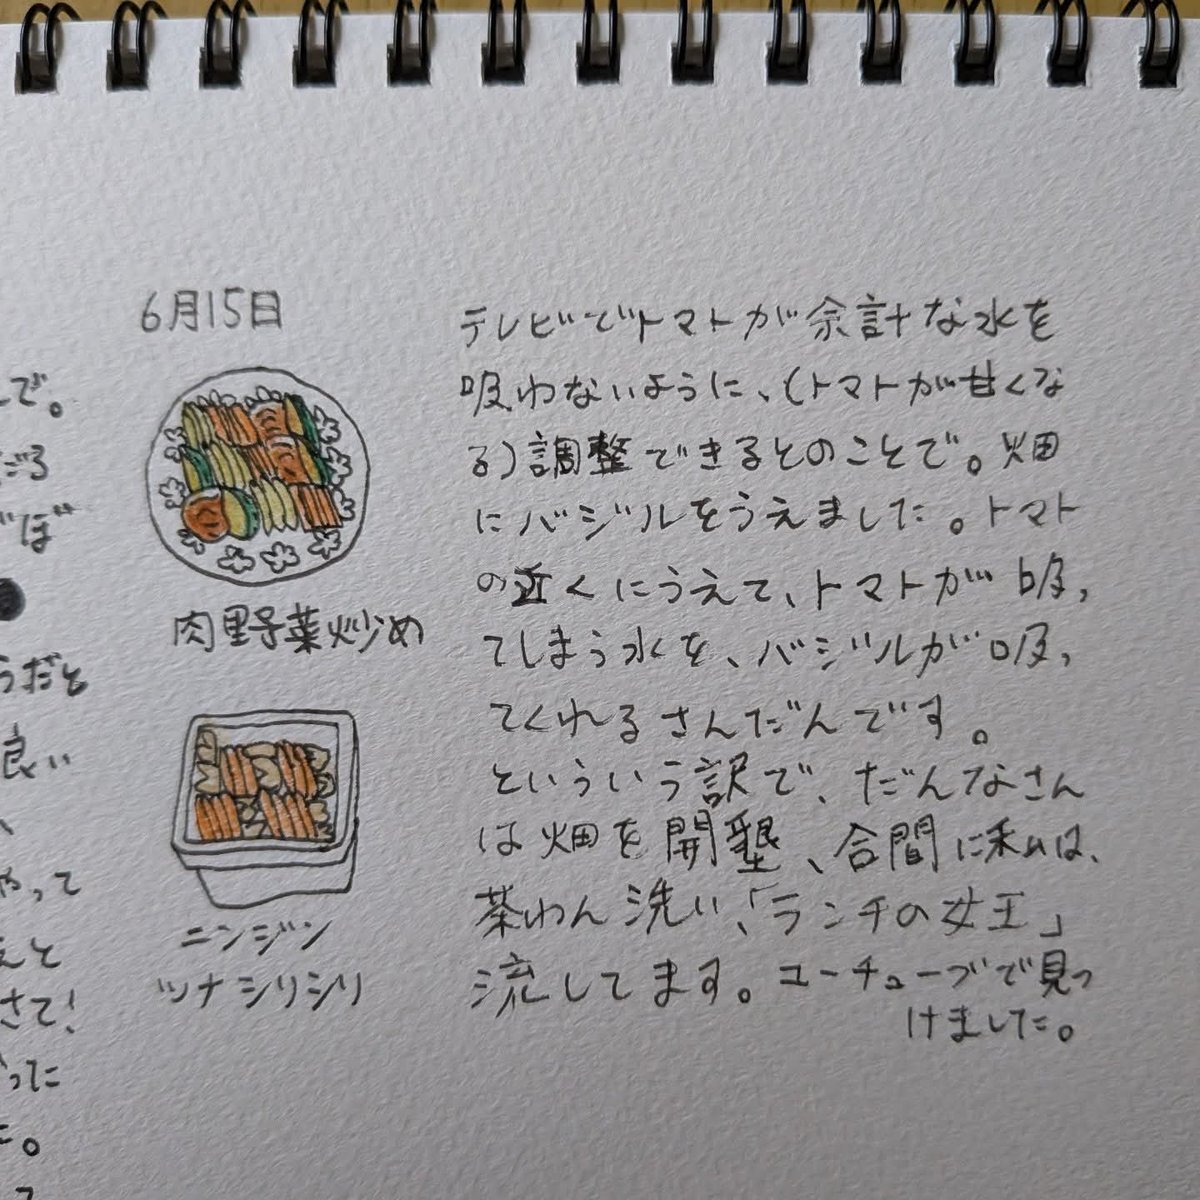 6月15日
肉野菜炒め
ニンジン
ツナシリシリ
テレビでトマトが余計な水を
吸わないように、(トマトが甘くな
る)調整できるとのことで。畑
にバジルをうえました。トマト
の近くにうえて、トマトが吸っ
てしまう水を、バジルが吸っ
てくれるさんだんです。
といういう訳で、だんなさん
は畑を開墾、合間に私は、
茶わん洗い、「ランチの女王」
流してます。ユーチューブで見つ
けました。
で。
ごろ
ぼ
うだと
良い
やって
えと
さて!
った
た。
て